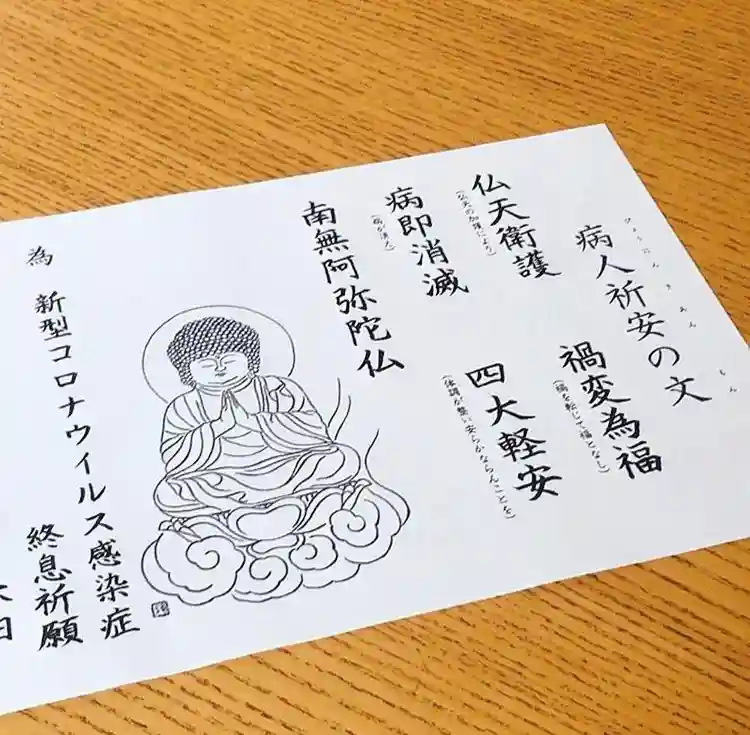 びょうにんきあんもん
病人祈安の文
仏天衛護
(仏天の加護により)
禍変為福
(禍を転じて福となし)
病即消滅
(病が消え)
四大軽安
(体調が整い安らかならんことを)
南無阿弥陀仏
為 新型コロナウィルス感染症
終息祈願